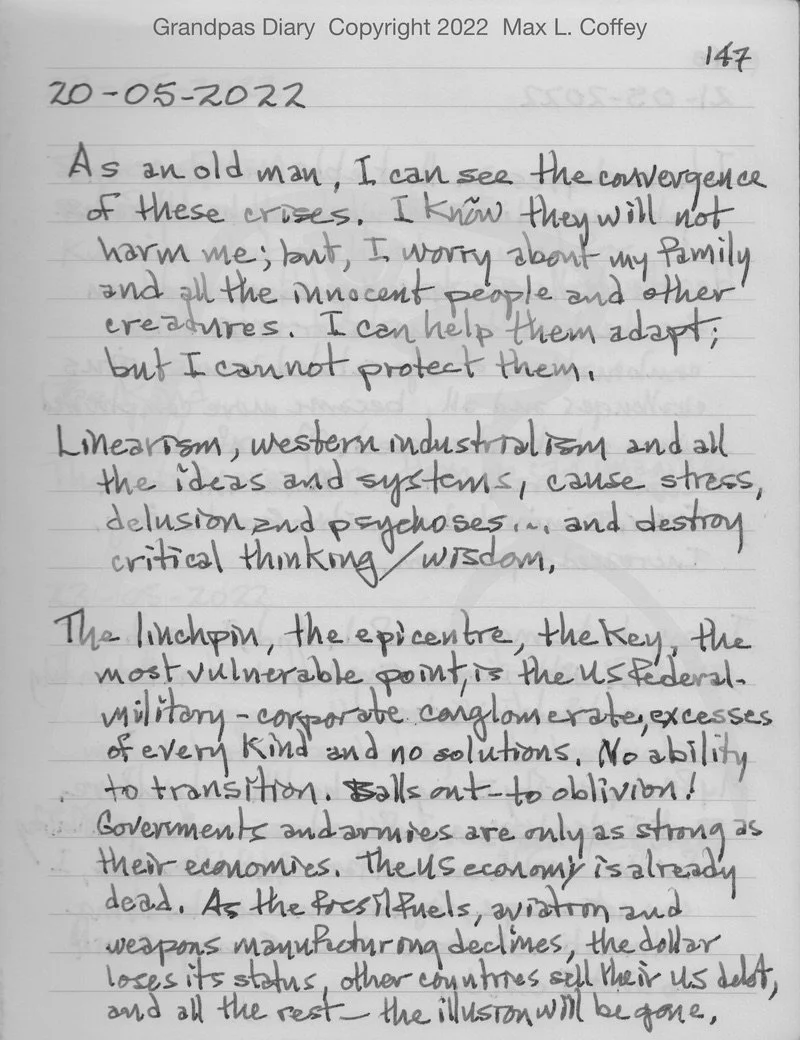 Grandpas Diary Copyright 2022 Max L. Coffey
147
20-05-2022
As an old man, I can see the convergence
of these crises. I know they will not
harm me; but, I worry about my family
and all the innocent people and other
creatures. I can help them adapt;
but I cannot protect them.
Linearism, western industrialism and all
the ideas and systems, cause stress,
delusion and psychoses... and destroy
critical thinking/wisdom.
The linchpin, the epicentre, the key, the
most vulnerable point, is the US federal-
military-corporate conglomerate, excesses
of every kind and no solutions. No ability
to transition. Balls out-to oblivion!
Governments and armies are only as strong as
their economies. The US economy is already
dead. As the fossil fuels, aviation and
weapons manufacturing declines, the dollar
loses its status, other countries sell their US debt,
and all the rest - the illusion will be gone.